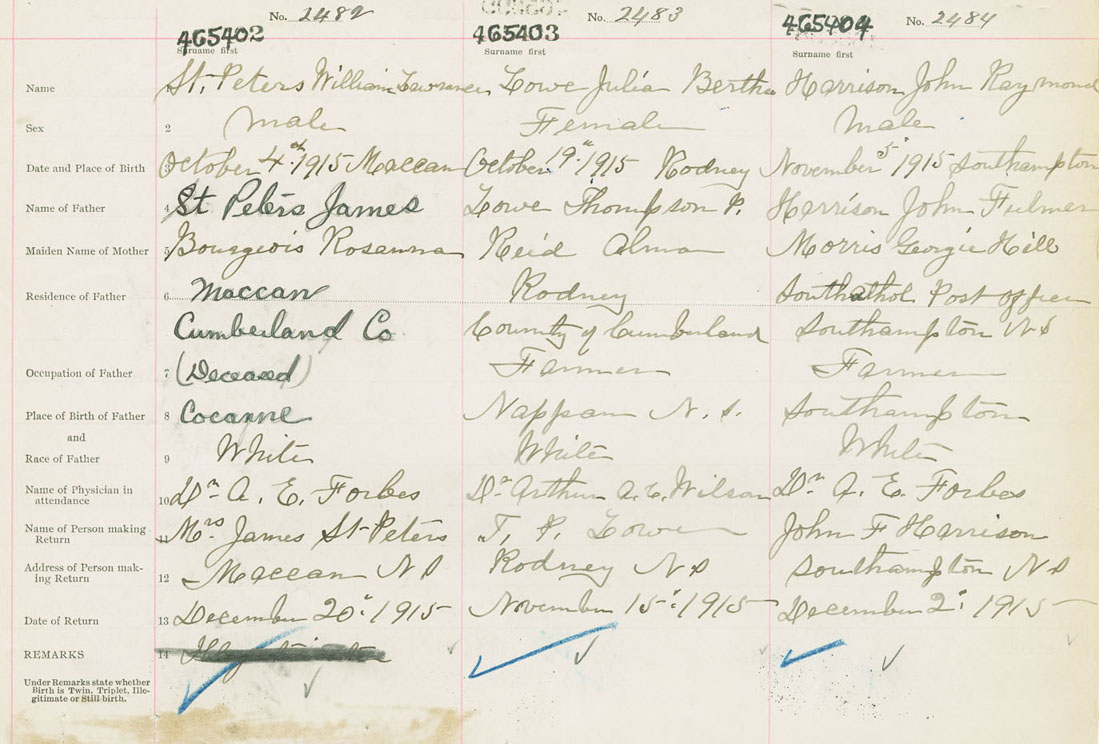 No. 2482 No. 2483 No. 2484
465402 465403 465404
Surname first Surname first Surname first
Name St. Peters William Lawrence Lowe Julia Bertha Harrison John Raymond
Sex 2 Male Female Male
Date and Place of Birth 3 October 4th 1915 Maccan October 19th 1915 Rodney November 5th 1915 Southampton
Name of Father 4 St Peters James Lowe Thompson P. Harrison John Fulmer
Maiden Name of Mother 5 Bourgeois Rosanna Reid Alma Morris Georgie Hill
Residence of Father 6 Maccan Rodney Southathol Post Office
Cumberland Co County of Cumberland Southampton N S
Occupation of Father 7 (Deceased) Farmer Farmer
Place of Birth of Father 8 Cocanne Nappan N. S. Southampton
and
Race of Father 9 White White White
Name of Physician in
attendance 10 Dr. A. E. Forbes Dr Arthur A. E. Wilson Dr. A. E. Forbes
Name of Person making
Return 11 Mrs James St Peters T. P. Lowe John F Harrison
Address of Person mak-
ing Return 12 Maccan N S Rodney N S Southampton N S
Date of Return 13 December 20th 1915 November 15th 1915 December 2nd 1915
REMARKS 14
Under Remarks state whether
Birth is Twin, Triplet, Ille-
gitimate or Still birth.